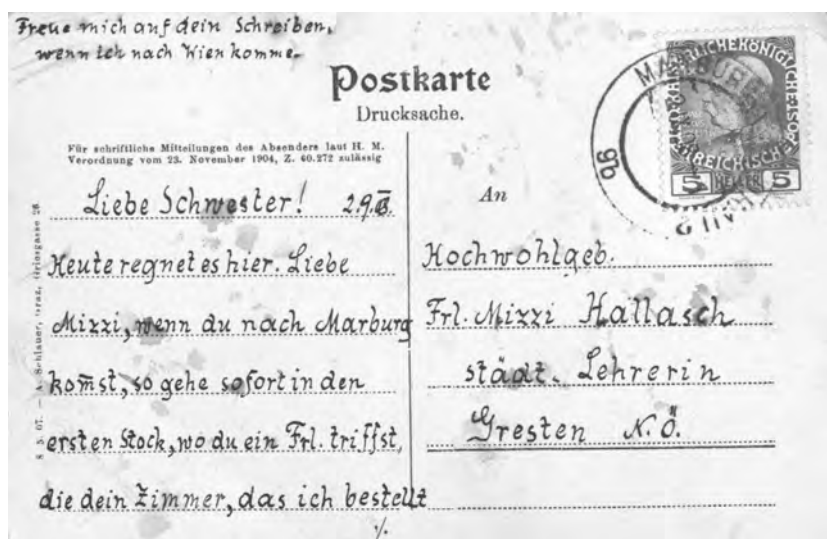 Freue mich auf dein Schreiben,
wenn ich nach Wien komme.
Postkarte
Drucksache.
Für schriftliche Mitteilungen des Absenders laut H. M.
Verordnung vom 23. November 1904, Z. 40.272 zulässig
Liebe Schwester! 2.9.
Heute regnet es hier. Liebe
Mizzi, wenn du nach Marburg
kom̄st, so gehe sofort in den
ersten Stock, wo du ein Frl. triffst,
die dein Zimmer, das ich bestellt
·/·
An
Hochwohlgeb.
Frl. Mizzi Hallasch
städt. Lehrerin
Gresten N.Ö.
A. Schlauer, Graz,
MARBURG
9b
5 HELLER 5